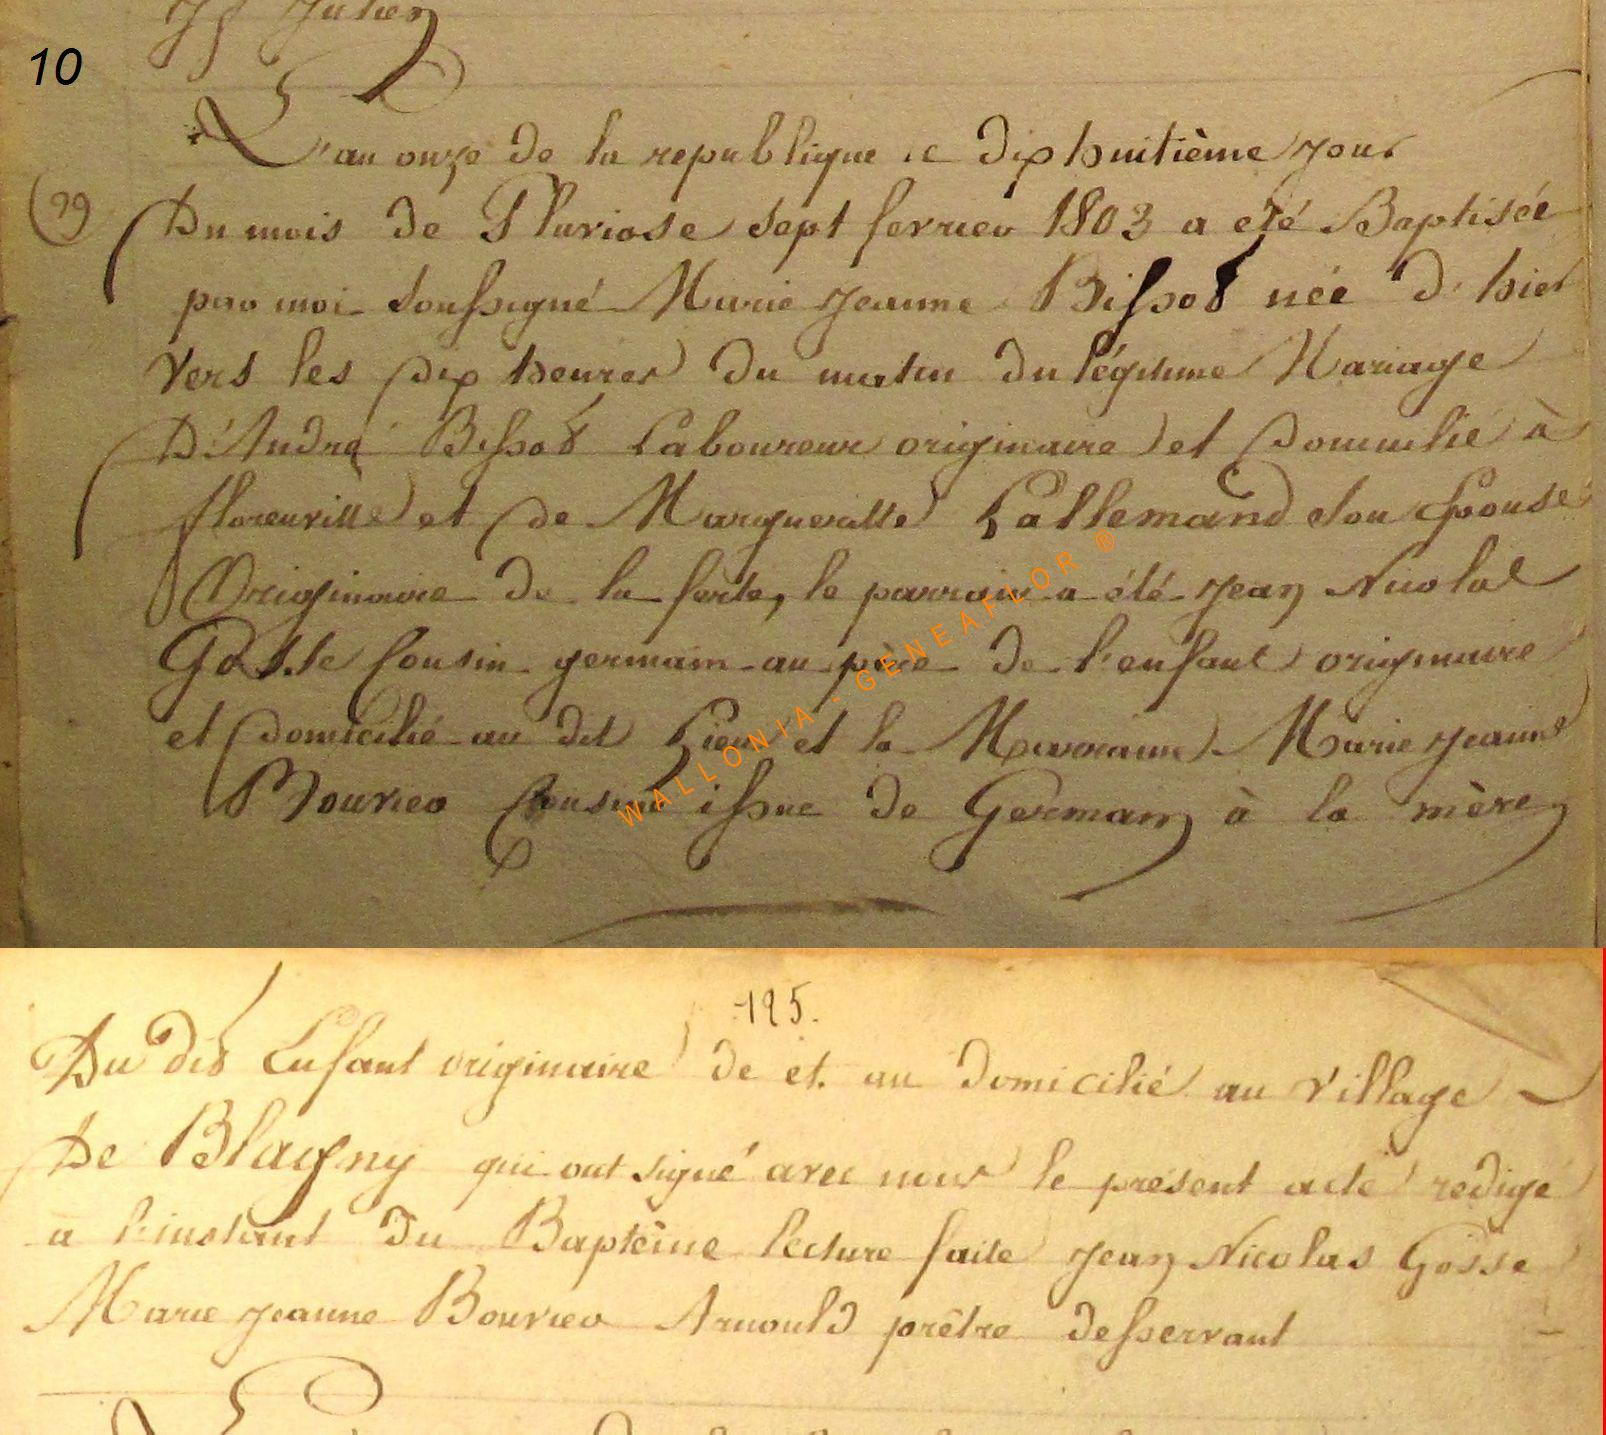 Js Julien
10
L'an onze de la republique le dix huitième jour
(29) Du mois de Pluviose sept fevrier 1803 a eté Baptisée
par moi soussigné Marie jeanne Bissot née d'hier
vers les dix heures du matin du légitime Mariage
D'André Bissot Laboureur originaire et Domicilié à
florenville et de Margueritte Lallemand son Epouse
Originaire de la ferte, le parrain a été jean Nicolas
Gosse Cousin germain au père de l'enfant originaire
et Domicilié au dit Lieu et la Marraine Marie jeanne
Bouvier Cousine issue de Germain à la mère
WALLONIA - GENEAFLOR ®
125.
Du dit Enfant originaire de et au domicilié au village
De Blagny qui ont signé avec nous le présent acte redigé
a l'instant du Baptême lecture faite jean Nicolas Gosse
Marie jeanne Bouvier Arnould prêtre desservant